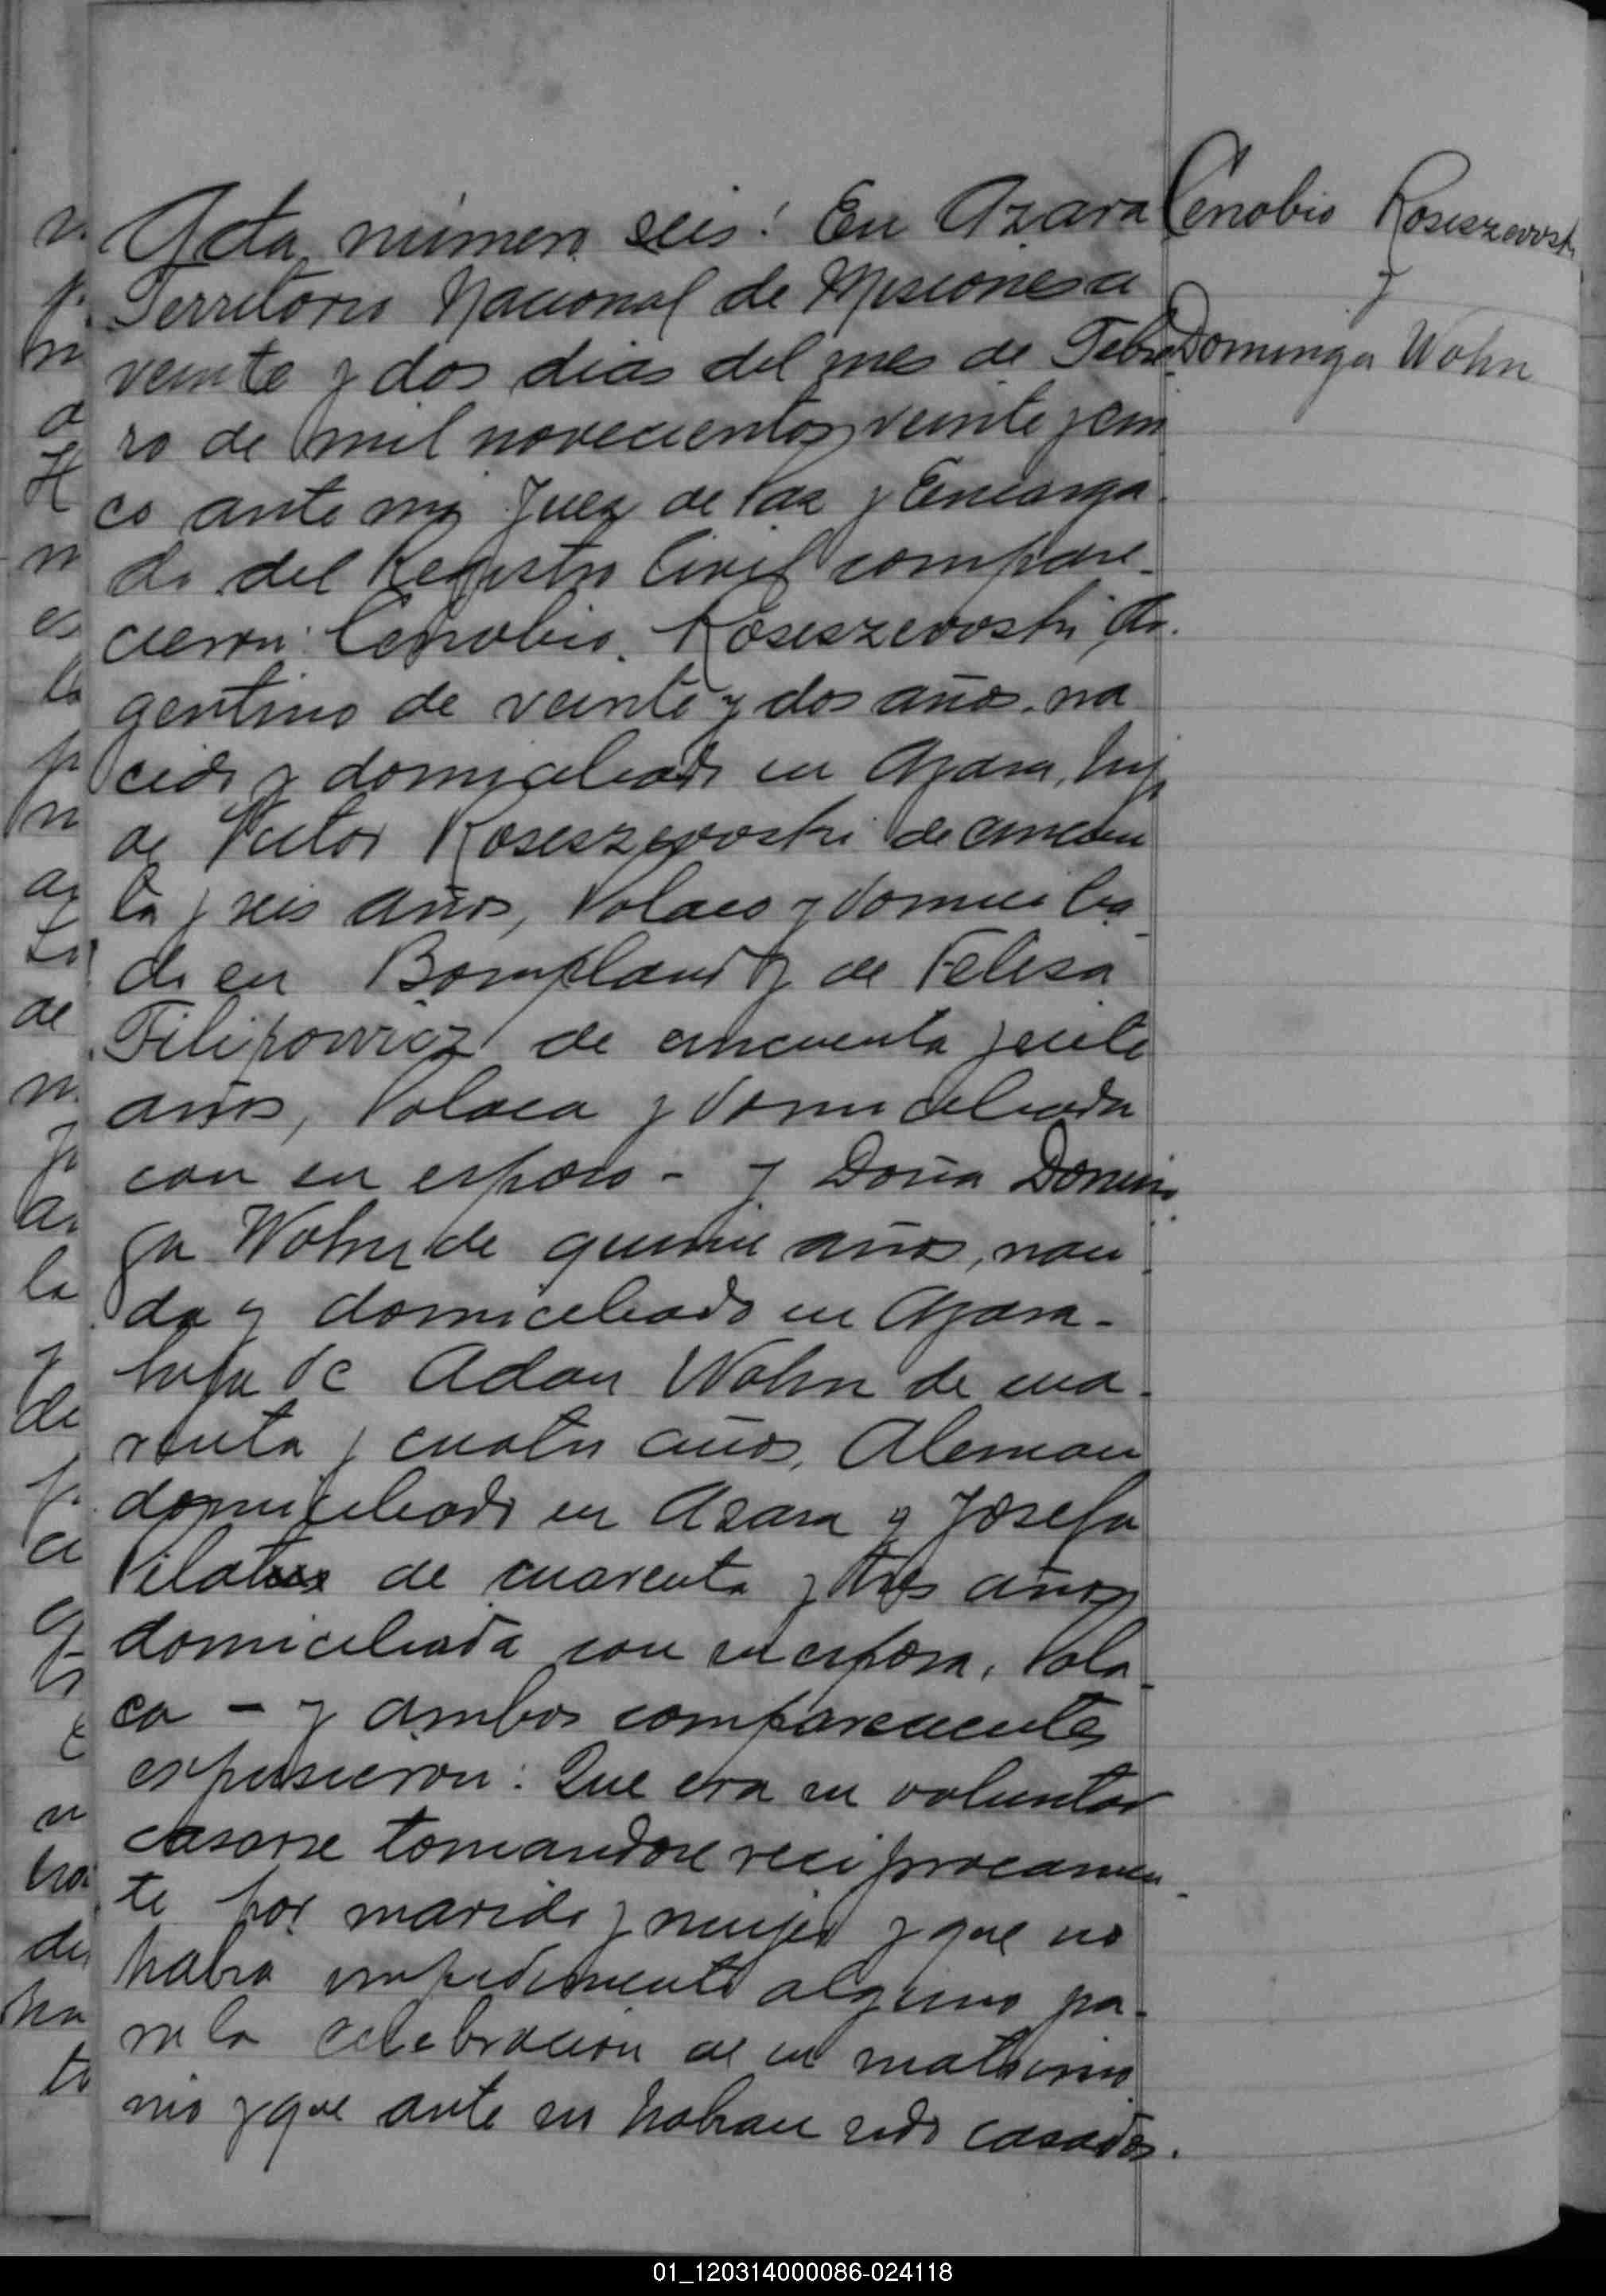 Cenobio Roseszewoski
y
Dominga Wohn
Acta número seis: En Azara
Territorio Nacional de Misiones a
veinte y dos dias del mes de Febre
ro de mil novecientos veinte y cin
co ante mi Juez de Paz y Encarga
do del Registro Civil compare-
cieron: Cenobio Roseszewoski Ar-
gentino de veinte y dos años, na
cido y domiciliado en Azara, hijo
de Victor Roseszewoski de cincuen
ta y seis años, Polaco y domicilia-
do en Bompland y de Felisa
Filipowicz de cincuenta y siete
años, Polaca y domiciliada
con su esposo - y Doña Domin
ga Wohn de quince años, naci
da y domiciliado en Azara-
hija de Adan Wohn de cua-
renta y cuatro años, Aleman
domiciliado en Azara y Josefa
de cuarenta y tres años
domiciliada con su esposo, Pola-
ca - y ambos comparecientes
espusieron: Que era su voluntad
casarse tomandose reciprocamen-
te por marido y mujer y que no
habia impedimento alguno pa-
ra la celebracion de su matrimo
nio y que ante su habian sido casados.
01_120314000086-024118